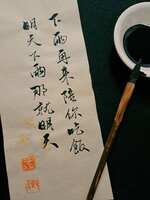 下雨再来陪你吃飯
明天下雨那就明天